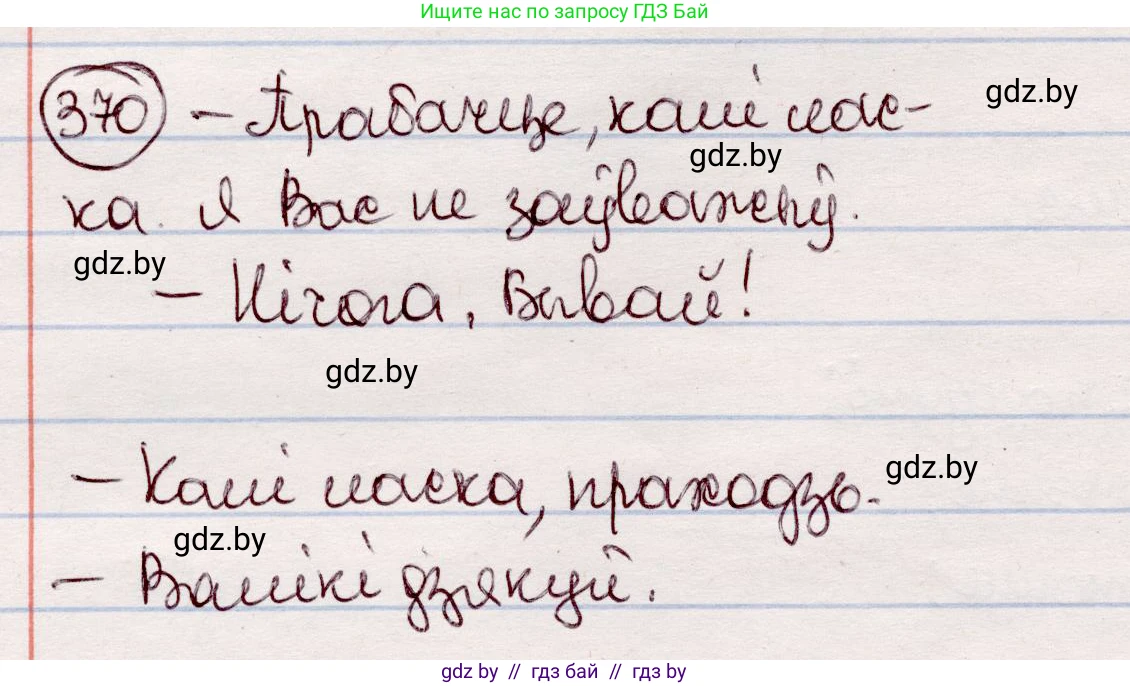 Ищите нас по запросу ГДЗ Бай
370 – Прабачце, калі лас-
gdz.by
gdz.by
ка. Я Вас не заўважыў.
gdz.by
– Нічога, Бывай!
gdz.by
– Калі ласка, праходзь.
gdz.by
gdz.by
– Вялікі дзякуй.
gdz by // гдз бай // гdz by